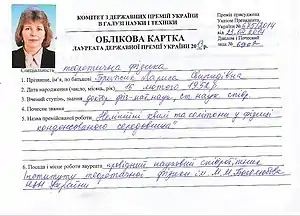 КОМІТЕТ З ДЕРЖАВНИХ ПРЕМІЙ УКРАЇНИ
В ГАЛУЗІ НАУКИ І ТЕХНІКИ
ОБЛІКОВА КАРТКА
ЛАУРЕАТА ДЕРЖАВНОЇ ПРЕМІЇ УКРАЇНИ 20
Премія присуджена
Указом Президента
України №
від
Диплом і Почесний
знак №
Спеціальність теоретична фізика
1. Прізвище, ім'я, по батькові Лариса
2. Дата народження (число, місяць, рік) лютого
3. Вчений ступінь, звання доктор фіз-мат наук, ст. наук. спів.
4. Почесне звання
5. Назва премійованої роботи „Нелінійні хвилі та солітони у фізиці
конденсованого середовища"
6. Посада і місце роботи лауреата провідний науковий співробітник
Інституту теоретичної фізики ім. М.М. Боголюбова
НАН України